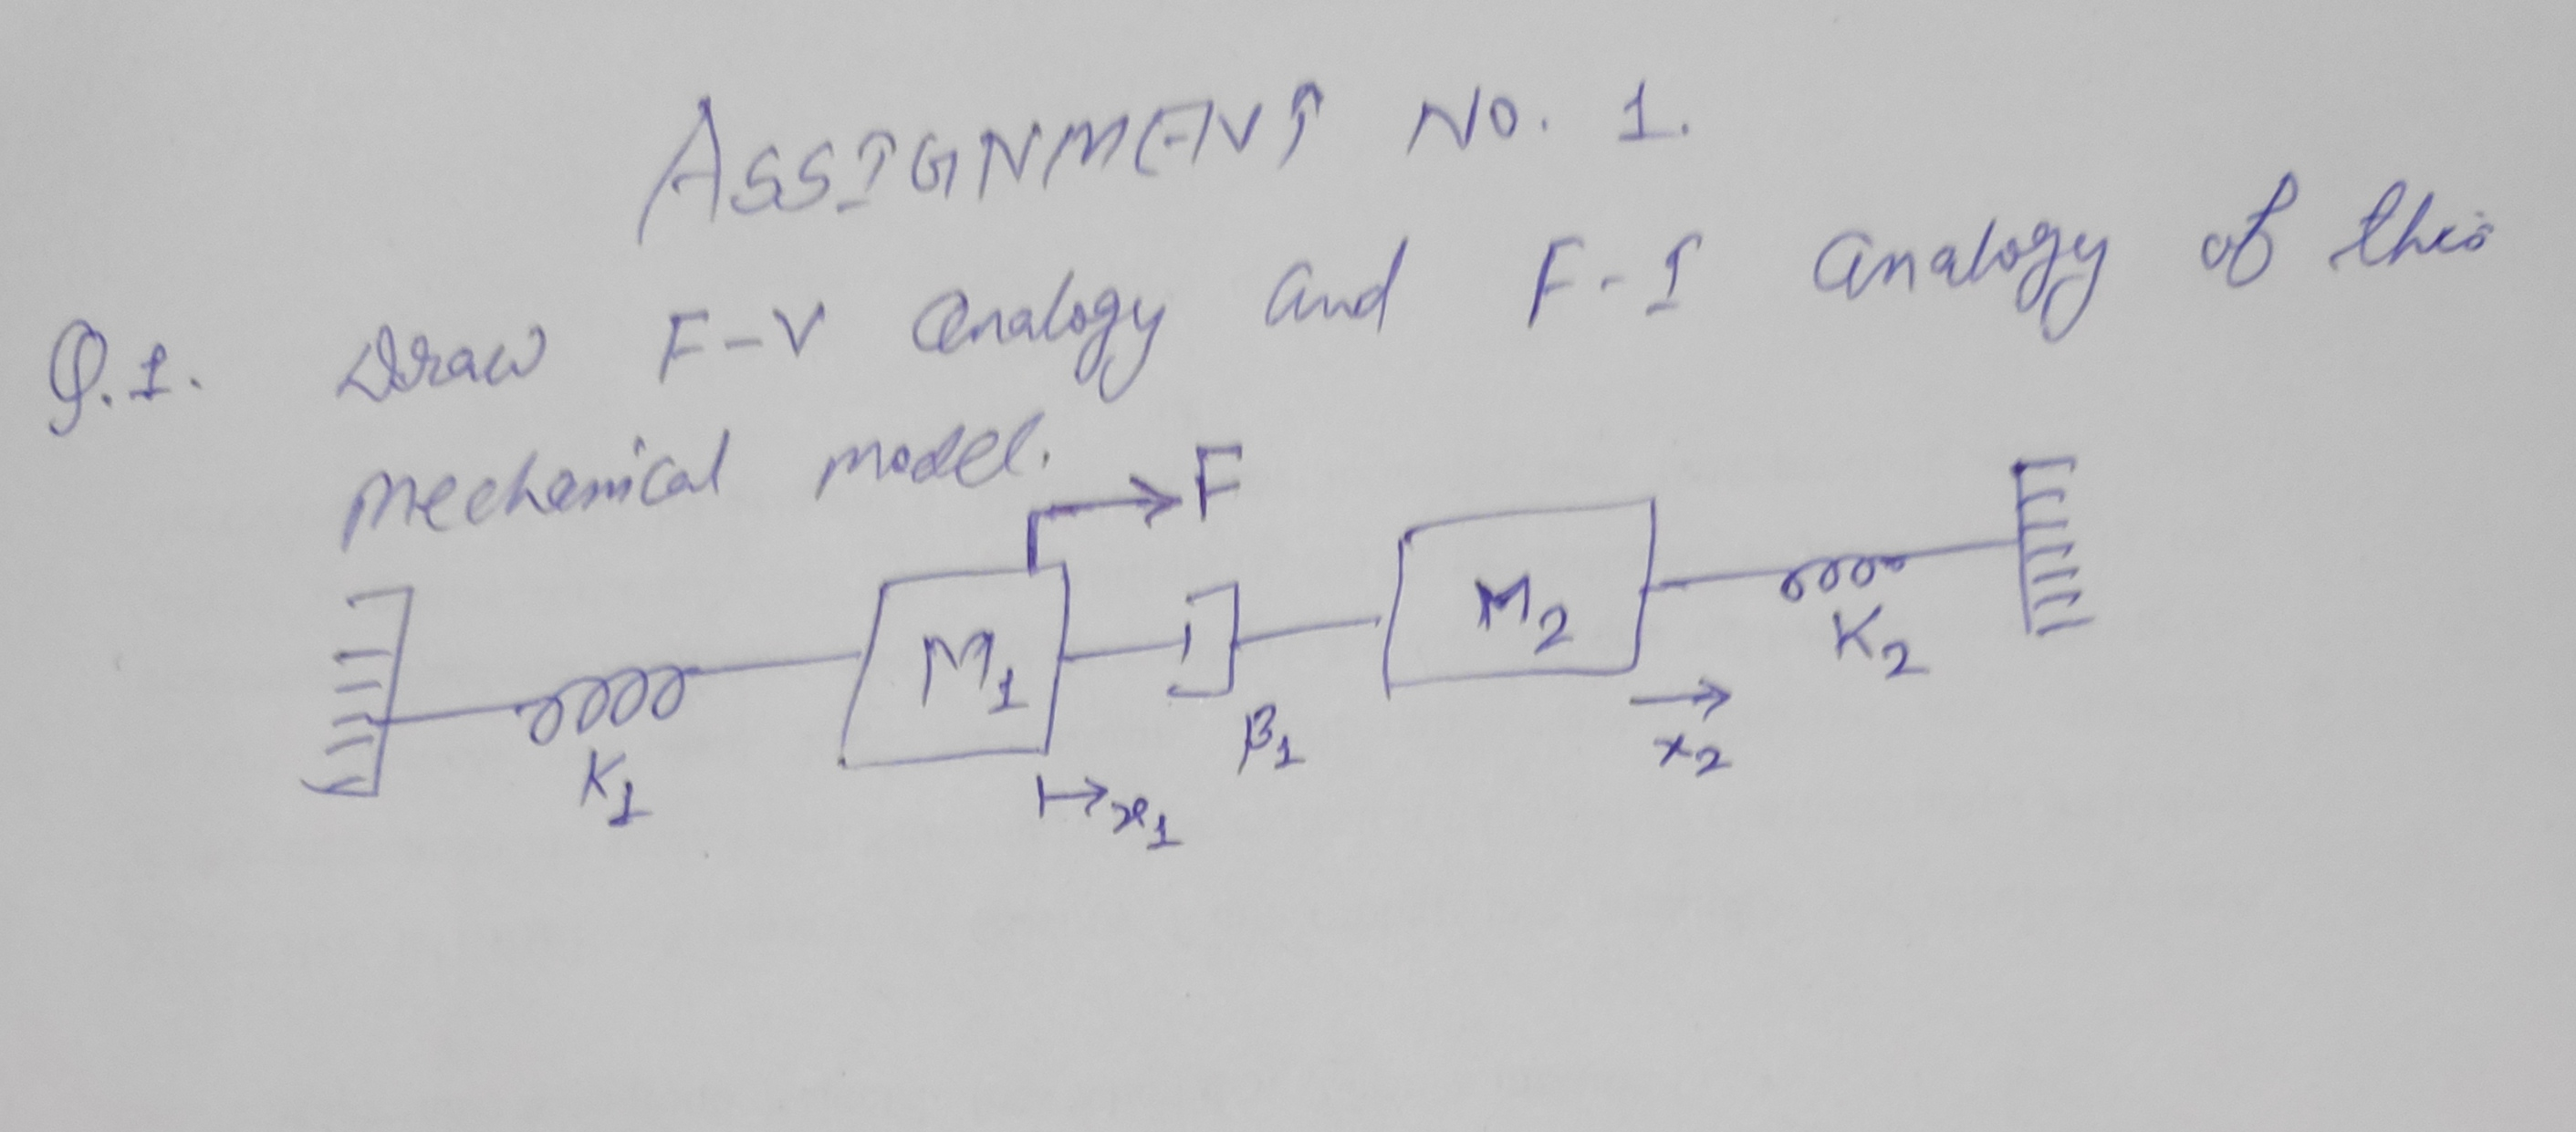 ASSIGNMENT NO. 1.
Q.1. Draw F-V analogy and F-I analogy of this
mechanical model.
F
M1
M2
K1
β1
K2
x1
x2